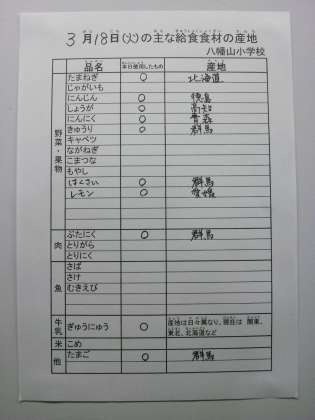 3月18日(火)の主な給食食材の産地
八幡山小学校
品名 本日使用したもの 産地
野菜・果物
たまねぎ ○ 北海道
じゃがいも
にんじん ○ 徳島
しょうが ○ 高知
にんにく ○ 青森
きゅうり ○ 群馬
キャベツ
ながねぎ
こまつな
もやし
はくさい ○ 群馬
レモン ○ 愛媛
肉
ぶたにく ○ 群馬
とりがら
とりにく
魚
さば
さけ
むきえび
牛乳 ぎゅうにゅう ○ 産地は日々異なり、現在は 関東、
東北、北海道など
米 こめ
他 たまご ○ 群馬